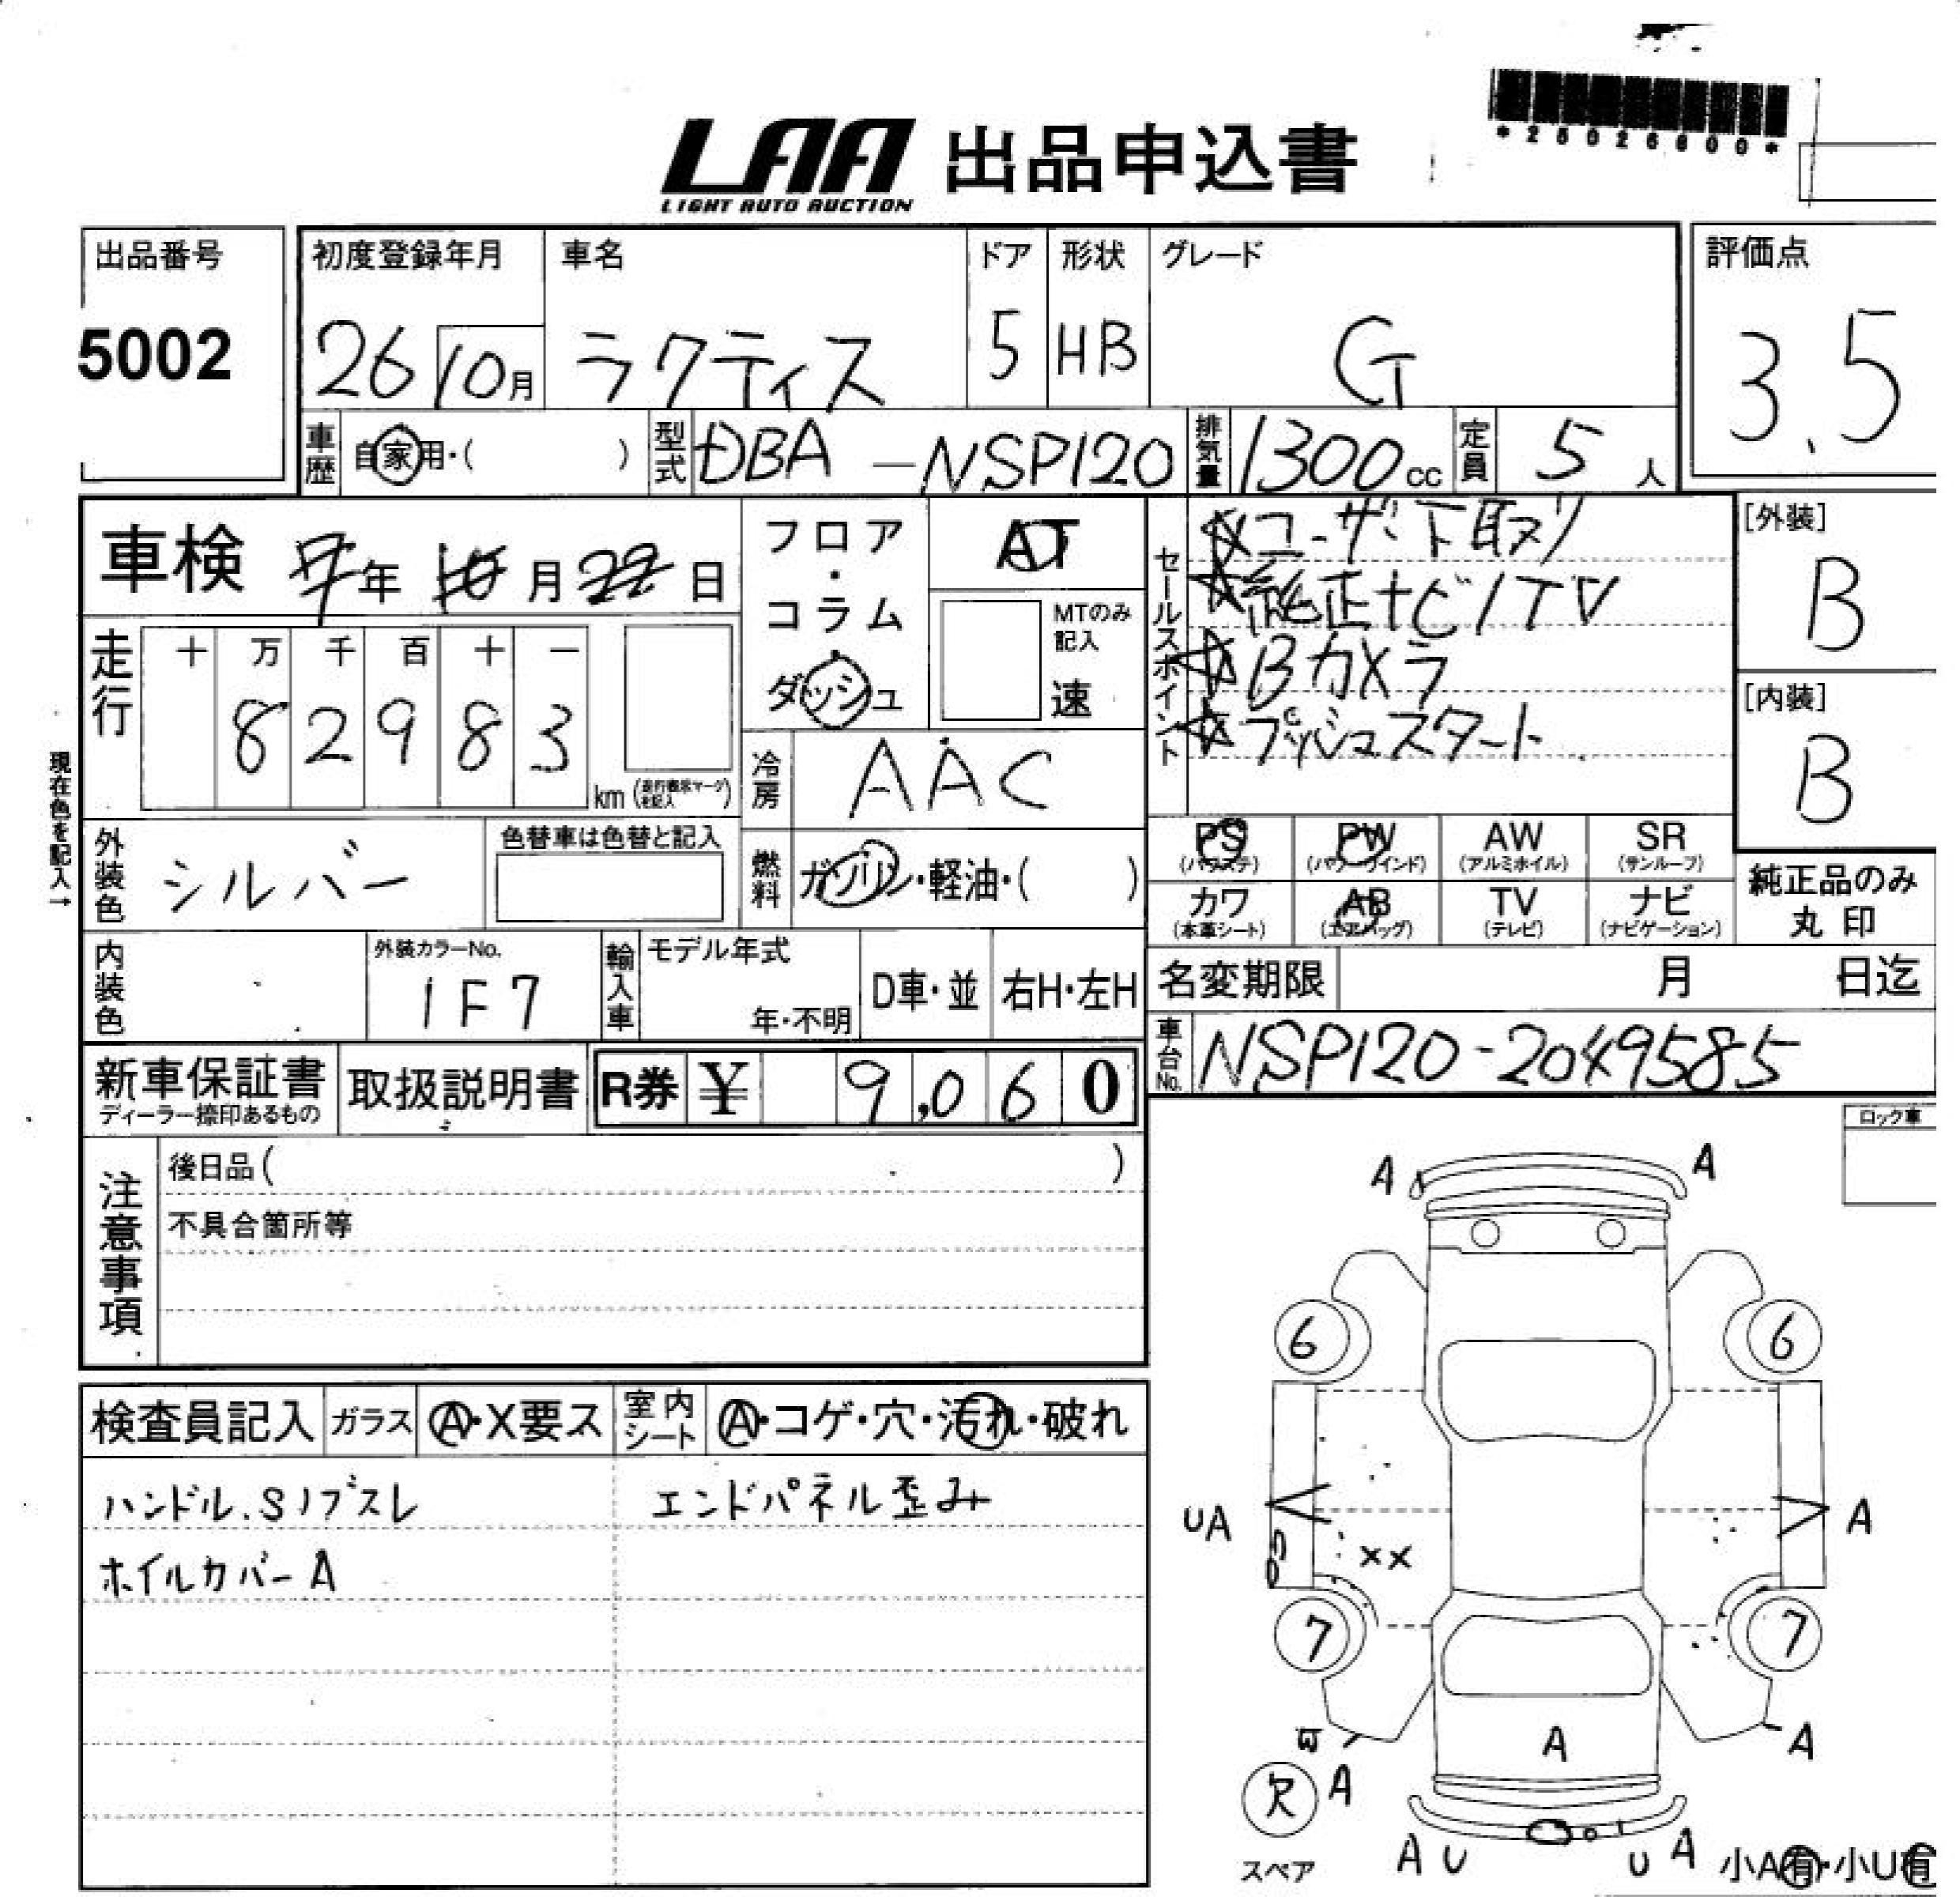 *25026600*
LAA 出品申込書
LIGHT AUTO AUCTION
出品番号
5002
初度登録年月
26 10月
車名
ラクティス
ドア
5
形状
HB
グレード
G
評価点
3.5
車歴 自家用・( )
型式 DBA-NSP120
排気量 1300cc
定員 5人
車検 7年 10月 22日
フロア・コラム・ダッシュ
AT
MTのみ記入
速
セールスポイント
☆ユーザー下取り
☆純正ナビ/TV
☆Bカメラ
☆プッシュスタート
[外装]
B
[内装]
B
走行
十 万 千 百 十 一
8 2 9 8 3
km (走行表示マークを記入)
冷房 AAC
現在色を記入→
外装色 シルバー
色替車は色替と記入
燃料 ガソリン・軽油・( )
PS (パワステ)
PW (パワーウインド)
AW (アルミホイル)
SR (サンルーフ)
カワ (本革シート)
AB (エアバッグ)
TV (テレビ)
ナビ (ナビゲーション)
純正品のみ
丸印
内装色
外装カラーNo.
1F7
輸入車
モデル年式
年・不明
D車・並
右H・左H
名変期限 月 日迄
車台No. NSP120-2049585
新車保証書
ディーラー捺印あるもの
取扱説明書
R券 ¥ 9,060
ロック車
注意事項
後日品( )
不具合箇所等
検査員記入
ガラス A・X要ス
室内シート A・コゲ・穴・汚れ・破れ
ハンドル.Sノブスレ
エンドパネル歪み
ホイルカバーA
A A
6 6
UA A
××
7 7
A A
欠 A
スペア
A U U A
小A有・小U有